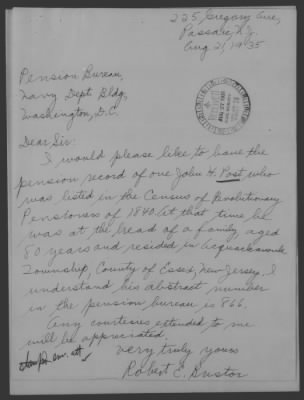 225 Gregory Ave,
Passaic, N.J.
Aug 21, 1935
Pension Bureau,
Navy Dept. Bldg,
Washington, D.C.
Dear Sir:
I would please like to have the
pension record of one John H. Post who
was listed in the Census of Revolutionary
Pensioners of 1840. At that time he
was at the head of a family, aged
80 years and resided in Acquackanonk
Township, County of Essex, New Jersey. I
understand his abstract number
in the pension bureau is 866.
Any courtesies extended to me
will be appreciated.
Very truly yours
Robert E.